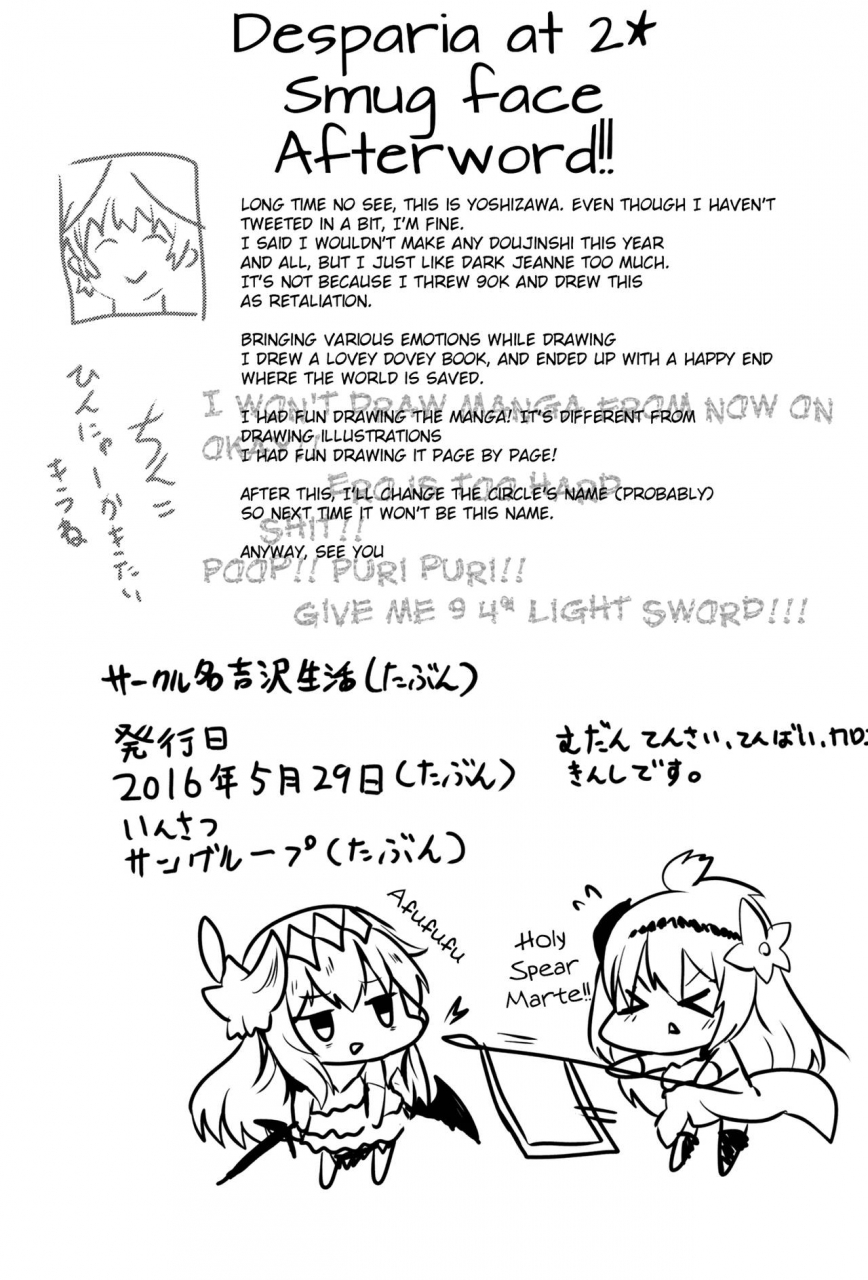 Desparia at 2*
Smug face
Afterword!!
LONG TIME NO SEE, THIS IS YOSHIZAWA. EVEN THOUGH I HAVEN'T
TWEETED IN A BIT, I'M FINE.
I SAID I WOULDN'T MAKE ANY DOUJINSHI THIS YEAR
AND ALL, BUT I JUST LIKE DARK JEANNE TOO MUCH.
IT'S NOT BECAUSE I THREW 90K AND DREW THIS
AS RETALIATION.
BRINGING VARIOUS EMOTIONS WHILE DRAWING
I DREW A LOVEY DOVEY BOOK, AND ENDED UP WITH A HAPPY END
WHERE THE WORLD IS SAVED.
I HAD FUN DRAWING THE MANGA! IT'S DIFFERENT FROM
DRAWING ILLUSTRATIONS
I HAD FUN DRAWING IT PAGE BY PAGE!
AFTER THIS, I'LL CHANGE THE CIRCLE'S NAME (PROBABLY)
SO NEXT TIME IT WON'T BE THIS NAME.
ANYWAY, SEE YOU
I WON'T DRAW MANGA FROM NOW ON
OKAY!!
ERO IS TOO HARD
SHIT!!
POOP!! PURI PURI!!
GIVE ME 9 4* LIGHT SWORD!!!
ちんこ
ひんにゅーがきたい
きつね
サークル名吉沢生活(たぶん)
発行日
2016年5月29日(たぶん)
いんさつ
サングループ(たぶん)
むだんてんさい、てんばい、
きんしです。
Afufufu
Holy
Spear
Marte!!